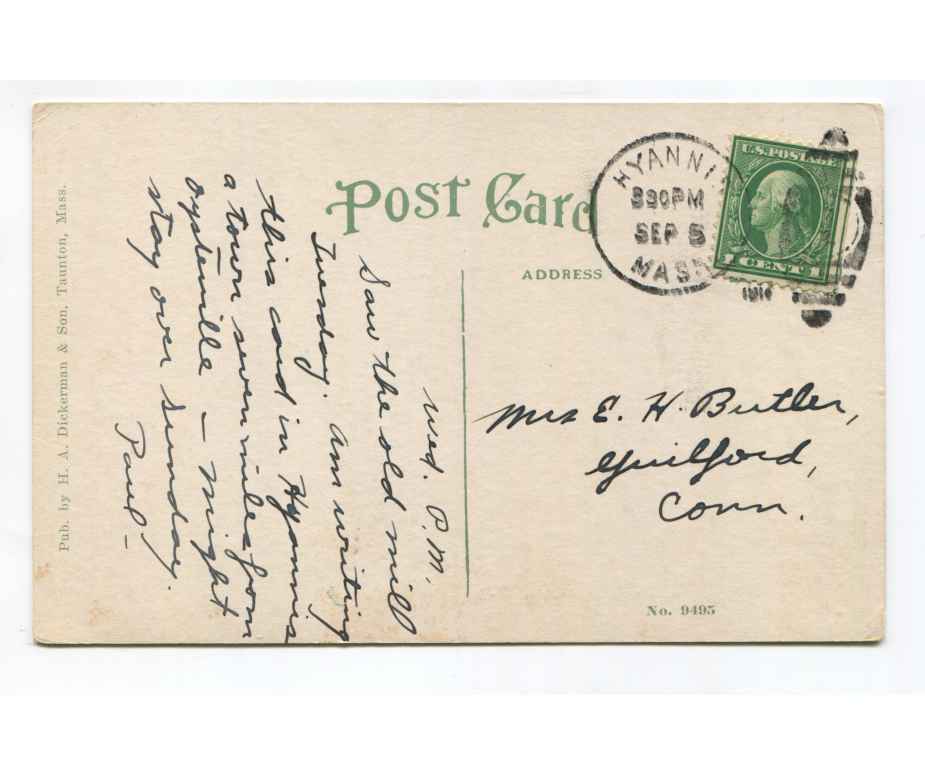 Post Card
ADDRESS
HYANNIS
330PM
SEP 5
MASS
1917
U.S. POSTAGE
1 CENT 1
Wed. P.M.
Saw the old mill
Tuesday. Am writing
this card in Hyannis
a town seven miles from
oysterville – might
stay over Sunday.
Paul –
Mrs E. H. Butler,
Guilford,
Conn.
No. 9495
Pub. by H. A. Dickerman & Son, Taunton, Mass.